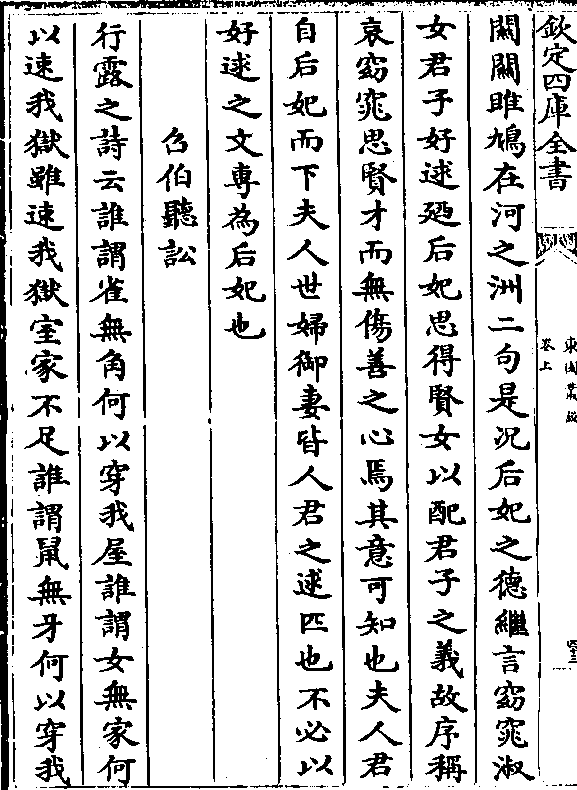 欽定四庫全書
東園叢說
卷上
關關雎鳩在河之洲二句是况后妃之德繼言窈窕淑
女君子好逑廼后妃思得賢女以配君子之義故序稱
哀窈窕思賢才而無傷善之心焉其意可知也夫人君
自后妃而下夫人世婦御妻皆人君之逑匹也不必以
好逑之文專為后妃也
召伯聽訟
行露之詩云誰謂雀無角何以穿我屋誰謂女無家何
以速我獄雖速我獄室家不足誰謂鼠無牙何以穿我